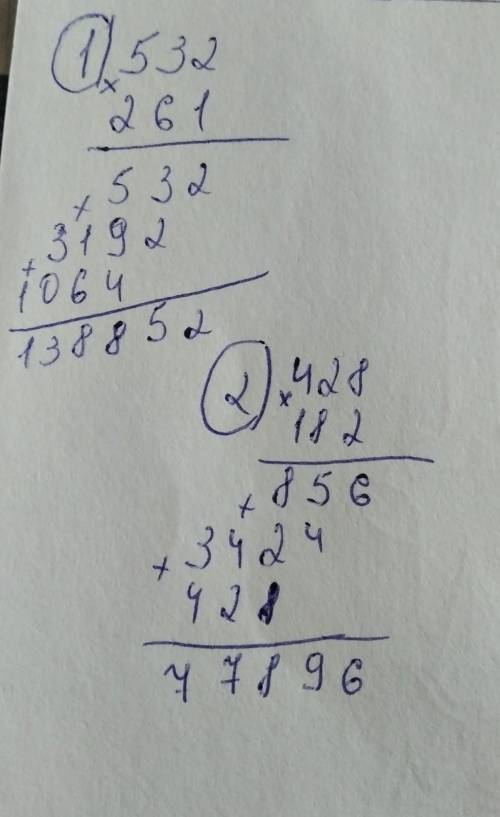 1 532
× 261
532
+ 3192
+ 1064
138852
2 428
× 182
856
+ 3424
+ 428
77896